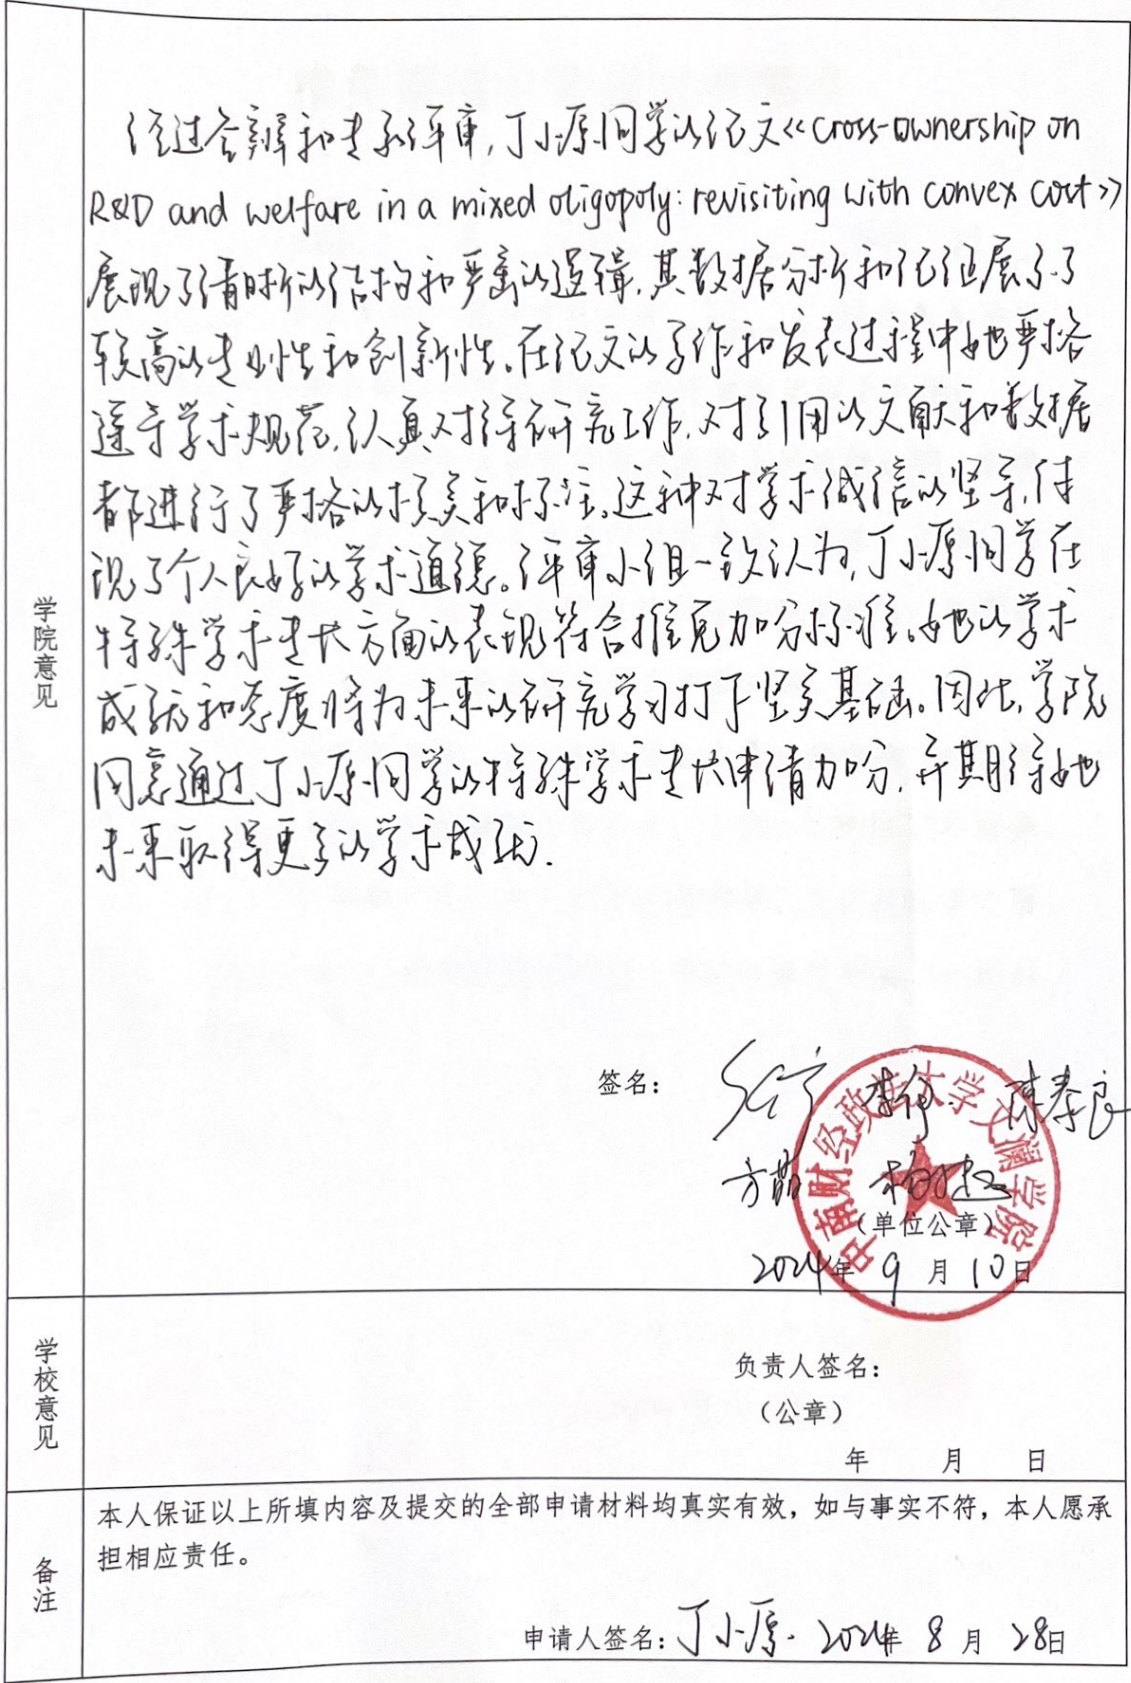 学院意见
经过答辩和专家评审，丁小原同学的论文《cross-ownership on
R&D and welfare in a mixed oligopoly: revisiting with convex cost》
展现了清晰的结构和严密的逻辑，其数据分析和论证展示了
较高的专业性和创新性。在论文的写作和发表过程中她严格
遵守学术规范，认真对待研究工作，对引用的文献和数据
都进行了严格的核实和标注。这种对学术诚信的坚守，体
现了个人良好的学术道德。评审小组一致认为，丁小原同学在
特殊学术专长方面的表现符合推免加分标准。她的学术
成就和态度将为未来的研究学习打下坚实基础。因此，学院
同意通过丁小原同学的特殊学术专长申请加分，并期待她
未来取得更多的学术成就.
签名：
李
陈泰良
方
中南财经政法大学文澜学院
（单位公章）
2024年 9 月 10日
学校意见
负责人签名：
（公章）
年 月 日
备注
本人保证以上所填内容及提交的全部申请材料均真实有效，如与事实不符，本人愿承
担相应责任。
申请人签名：丁小原 2024年 8 月 28日